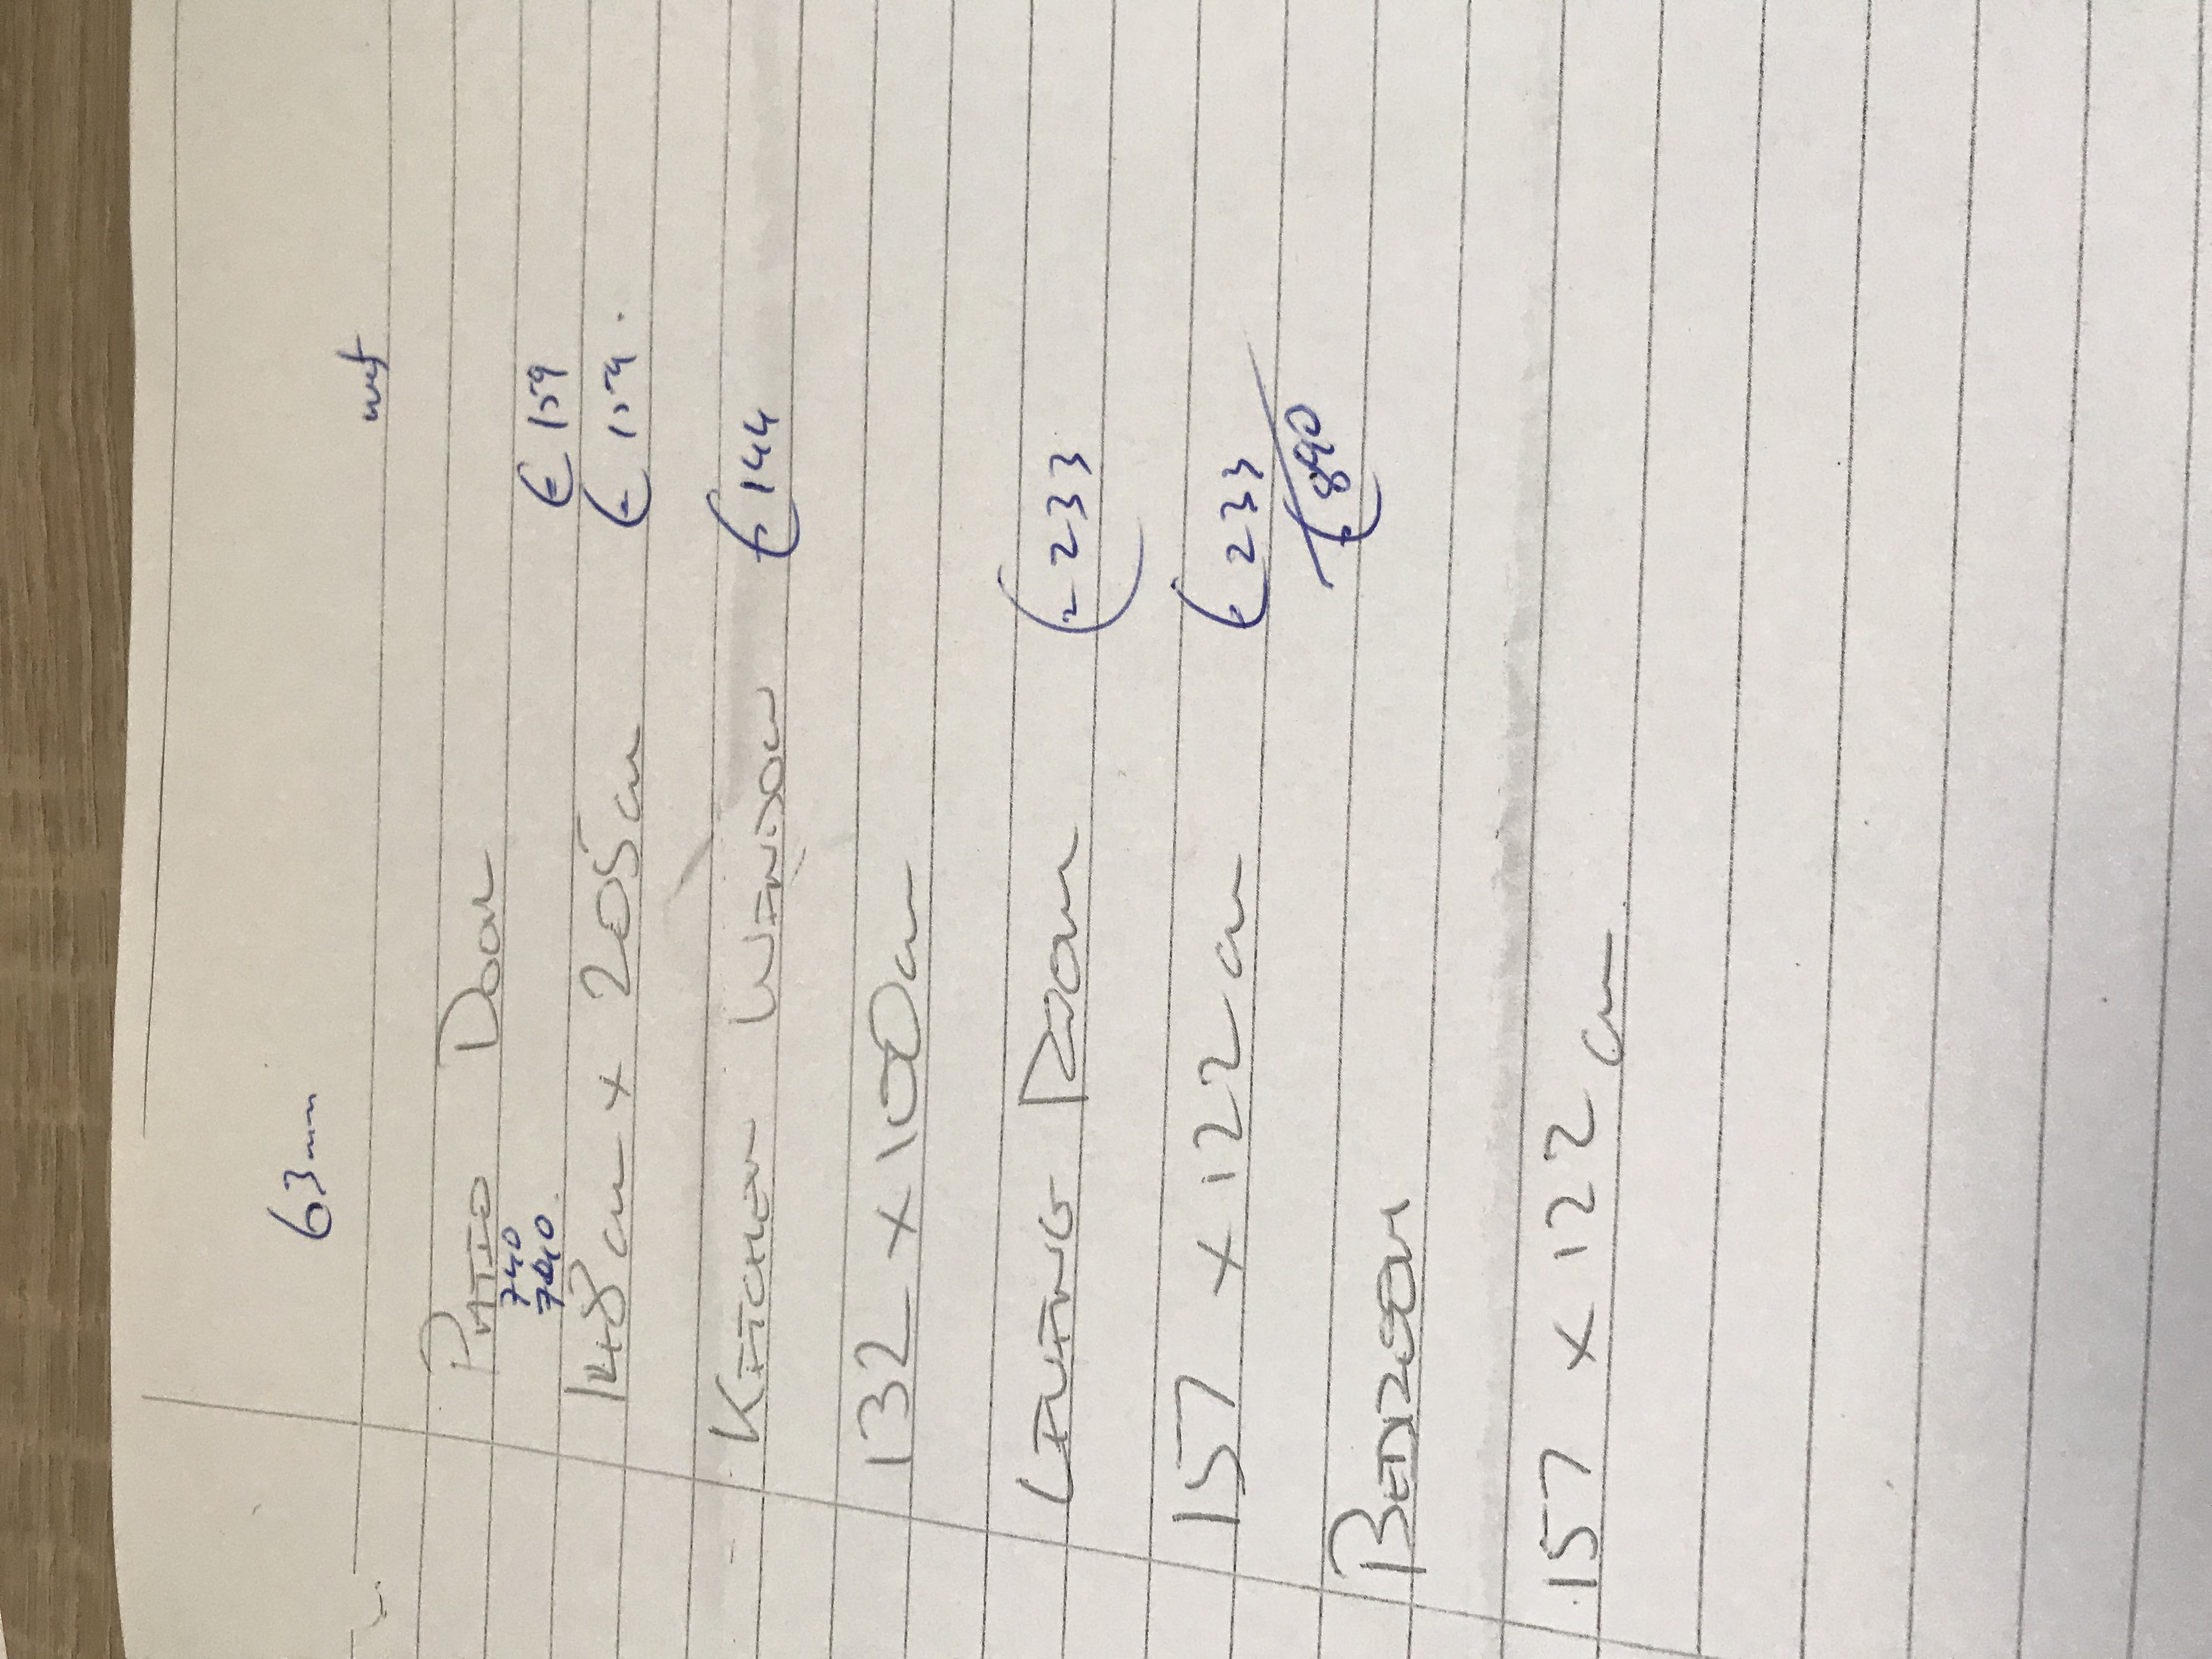 63mm
Patio Door
740 € 159
740. € 159.
148cm x 205cm
Kitchen Window € 144
132 x 100cm
Living Room € 233
157 x 122cm € 233
Bedroom
157 x 122cm